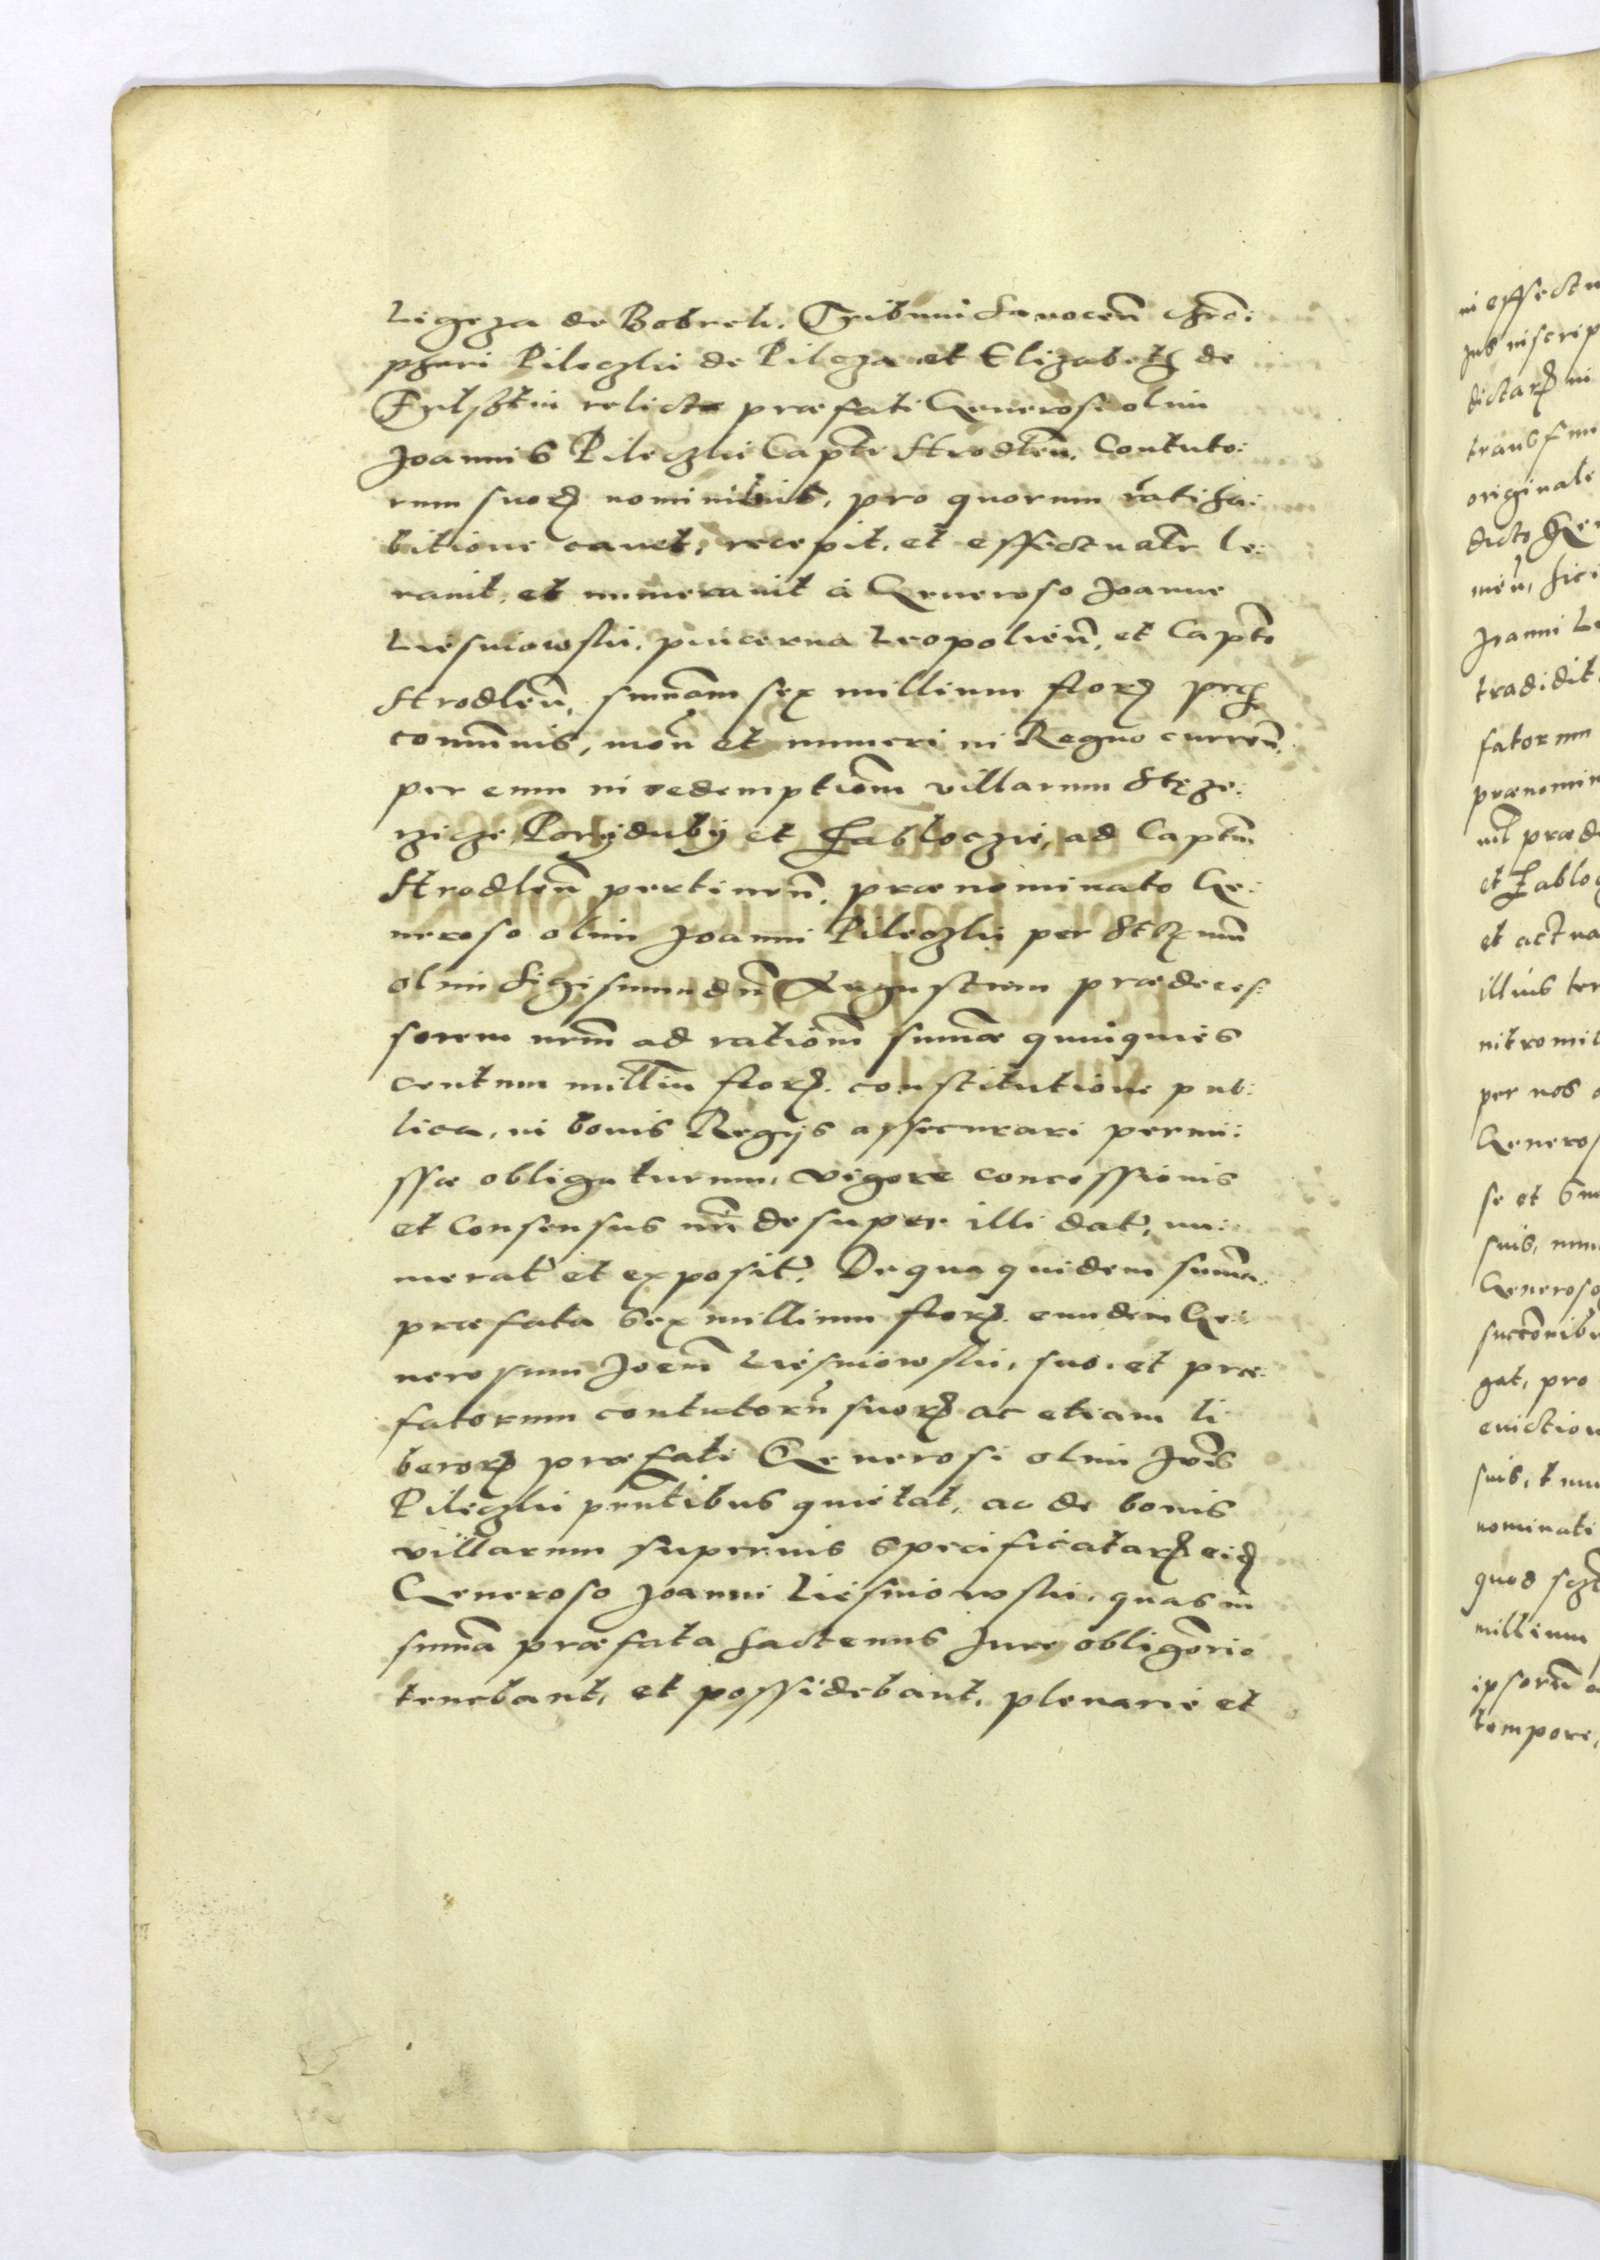 Ligęza de Bobrek. Tribuni Sanocen̄ Chrō:
phori Pileczki de Pilcza et Elizabeth de
relictæ præfati Generosi olim
Joannis Pileczki Capt̄i Hrodlen̄. Contuto:
rum suorꝫ nominibus, pro quorum ratiha:
bitione cavet, recepit, et effectualr̄ le:
vavit, et numeravit à Generoso Joanne
Liesniowski, pincerna Leopolien̄, et Capt̄o
Hrodlen̄, sum̄am sex millium florꝫ pecꝫ
com̄unis, mon̄ et numeri in Regno curren̄.
per eum in redemptiōm villarum Stęze:
rzicze Porijdubij et Habloczie, ad Capt̄m
Hrodlen̄ pertinen̄. prænominato Ge:
neroso olim Joanni Pileczki per
olim Sigismundū Augustum prædeces:
sorem nr̄m ad ratiōm sum̄æ quinquies
centum milliū florꝫ. constitutione pub:
lica, in bonis Regijs assecurari permi:
ssæ obligaturum, vigore concessionis
et consensus nr̄i desuper illi dat̄, nu:
merat̄ et exposit̄. De qua quidem sum̄a
præfata sex millium florꝫ. eundem Ge:
nerosum Joem̄ Liesniowski, suo, et præ:
fatorum contutorū suorꝫ ac etiam li
berorꝫ præfati Generosi olim Jōis
Pileczki pn̄tibus quietat, ac de bonis
villarum superius specificatarꝫ eidꝫ
Generoso Joanni Liesniowski, quas in
sum̄a præfata hactenus Jure obligōrio
tenebant, et possidebant, plenarie et
in effectu
inscrip
dictarꝫ in
originale
dicto Ge
Joanni Le
tradidit
fatorum
prænomin
præd
et Habloc
et actua
illius ter
intromit
per nos
Generos
se et
suis,
Generoso
gat, pro
eviction
suis,
nominati
quod
millium
ipsorū
tempore,